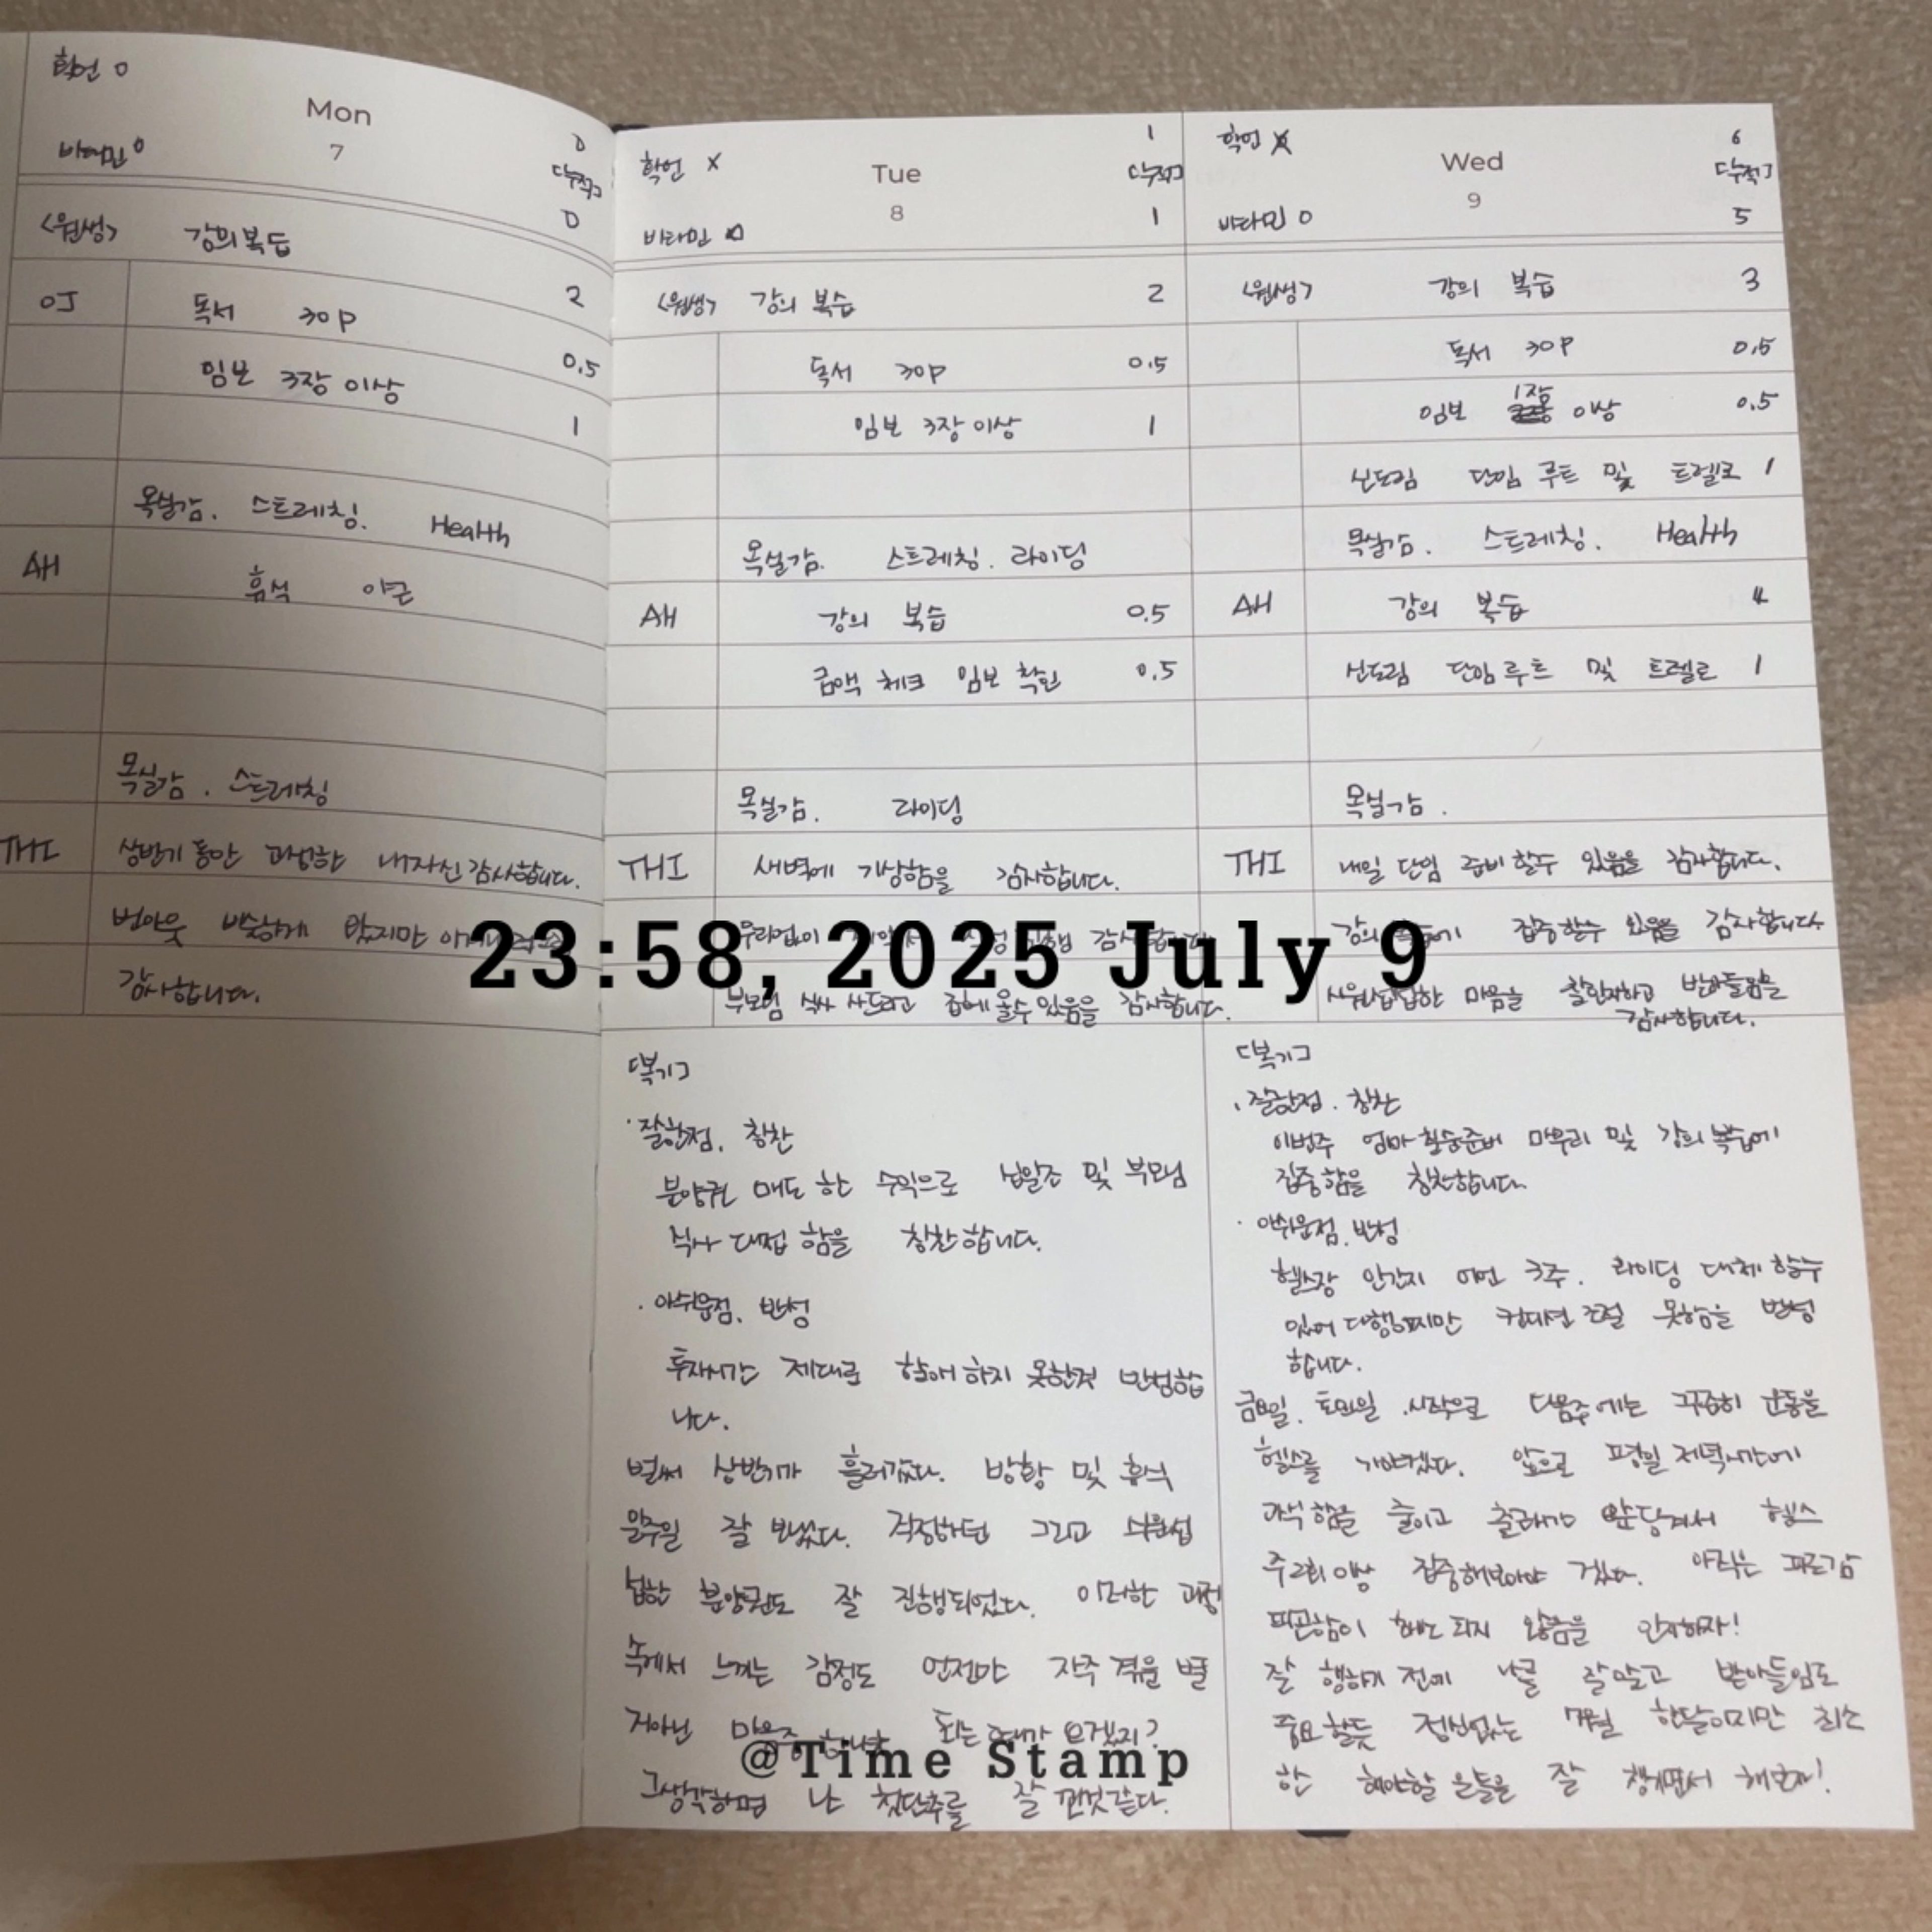 확언 O
Mon
7
비타민 O
0
[누적]
0
<원생> 강의복습 2
OJ 독서 30P 0.5
임보 3장 이상 1
목실감. 스트레칭. Health
AH 휴식 야근
목실감. 스트레칭
THI 상반기 동안 고생한 내자신 감사합니다.
번아웃 비슷하게 왔지만
감사합니다.
확언 X
Tue
8
비타민
1
[누적]
1
<원생> 강의 복습 2
독서 30P 0.5
임보 3장 이상 1
목실감. 스트레칭. 라이딩
AH 강의 복습 0.5
금액 체크 임보 확인 0.5
목실감. 라이딩
THI 새벽에 기상함을 감사합니다.
감사합니다.
부모님 식사 사드리고 집에 올수 있음을 감사합니다.
[복기]
· 잘한점. 칭찬
분양권 매도 한 수익으로 및 부모님
식사 대접 함을 칭찬합니다.
· 아쉬운점. 반성
투자시간 제대로 할애 하지 못한것 반성합
니다.
벌써 상반기가 흘러갔다. 방황 및 휴식
일주일 잘 보냈다. 걱정하던 그리고 시원섭
섭한 분양권도 잘 진행되었다. 이러한 과정
속에서 느끼는 감정도 언젠가 자주 겪을 별
거아닌 되는 오겠지?
그생각하면 난 첫단추를 잘 낀것같다.
확언 X
Wed
9
비타민 O
6
[누적]
5
<원생> 강의 복습 3
독서 30P 0.5
임보 1장 이상 0.5
신도림 단임 루트 및 트렐로 1
목실감. 스트레칭. Health
AH 강의 복습 4
신도림 단임 루트 및 트렐로 1
목실감.
THI 내일 단임 준비 할수 있음을 감사합니다.
강의 집중할수 있음을 감사합니다
시원섭섭한 마음을 잘인지하고 받아들임을
감사합니다.
[복기]
· 잘한점. 칭찬
이번주 엄마 준비 마무리 및 강의 복습에
집중함을 칭찬합니다.
· 아쉬운점. 반성
헬스장 안간지 어언 3주. 라이딩 대체 할수
있어 다행이지만 컨디션 조절 못함을 반성
합니다.
금요일. 토요일 시작으로 다음주에는 꾸준히 운동을
헬스를 가야겠다. 앞으로 평일 저녁시간에
과식함을 줄이고 앞당겨서 헬스
주2회이상 집중해보아야 겠다. 아직은
피곤함이 해소 되지 않음을 인지하자!
잘 행하기 전에 나를 잘알고 받아들임도
중요할듯 정신없는 7월 한달이지만 최소
한 해야할 일들을 잘 챙기면서 해보자!
23:58, 2025 July 9
@Time Stamp